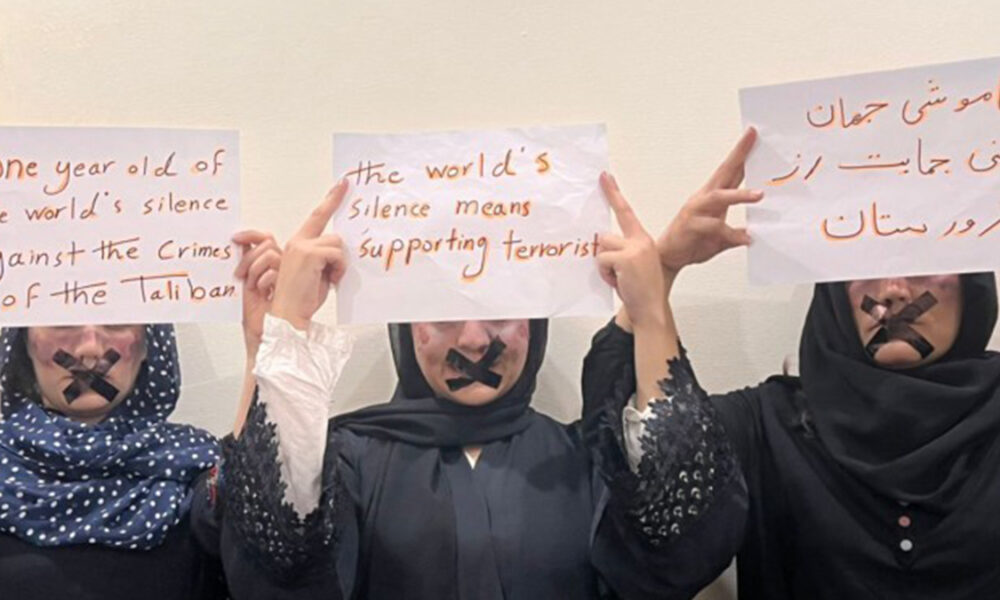 one year old of
e world's silence
gainst the Crimes
of the Taliban
the world's
Silence means
Supporting terrorist
اموشی جهان
نی حمایت رز
رورستان